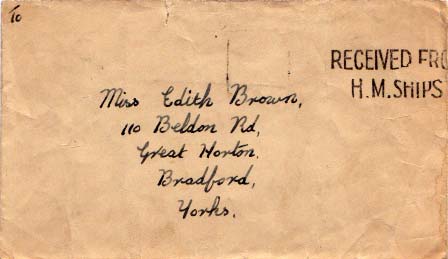 To
RECEIVED FRO
H.M. SHIPS
Miss Edith Brown,
110 Beldon Rd,
Great Horton.
Bradford,
Yorks.